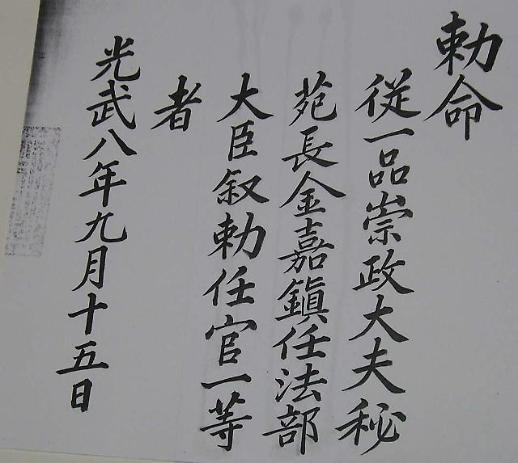 勅命
從一品崇政大夫秘
苑長金嘉鎭任法部
大臣叙勅任官一等
者
光武八年九月十五日